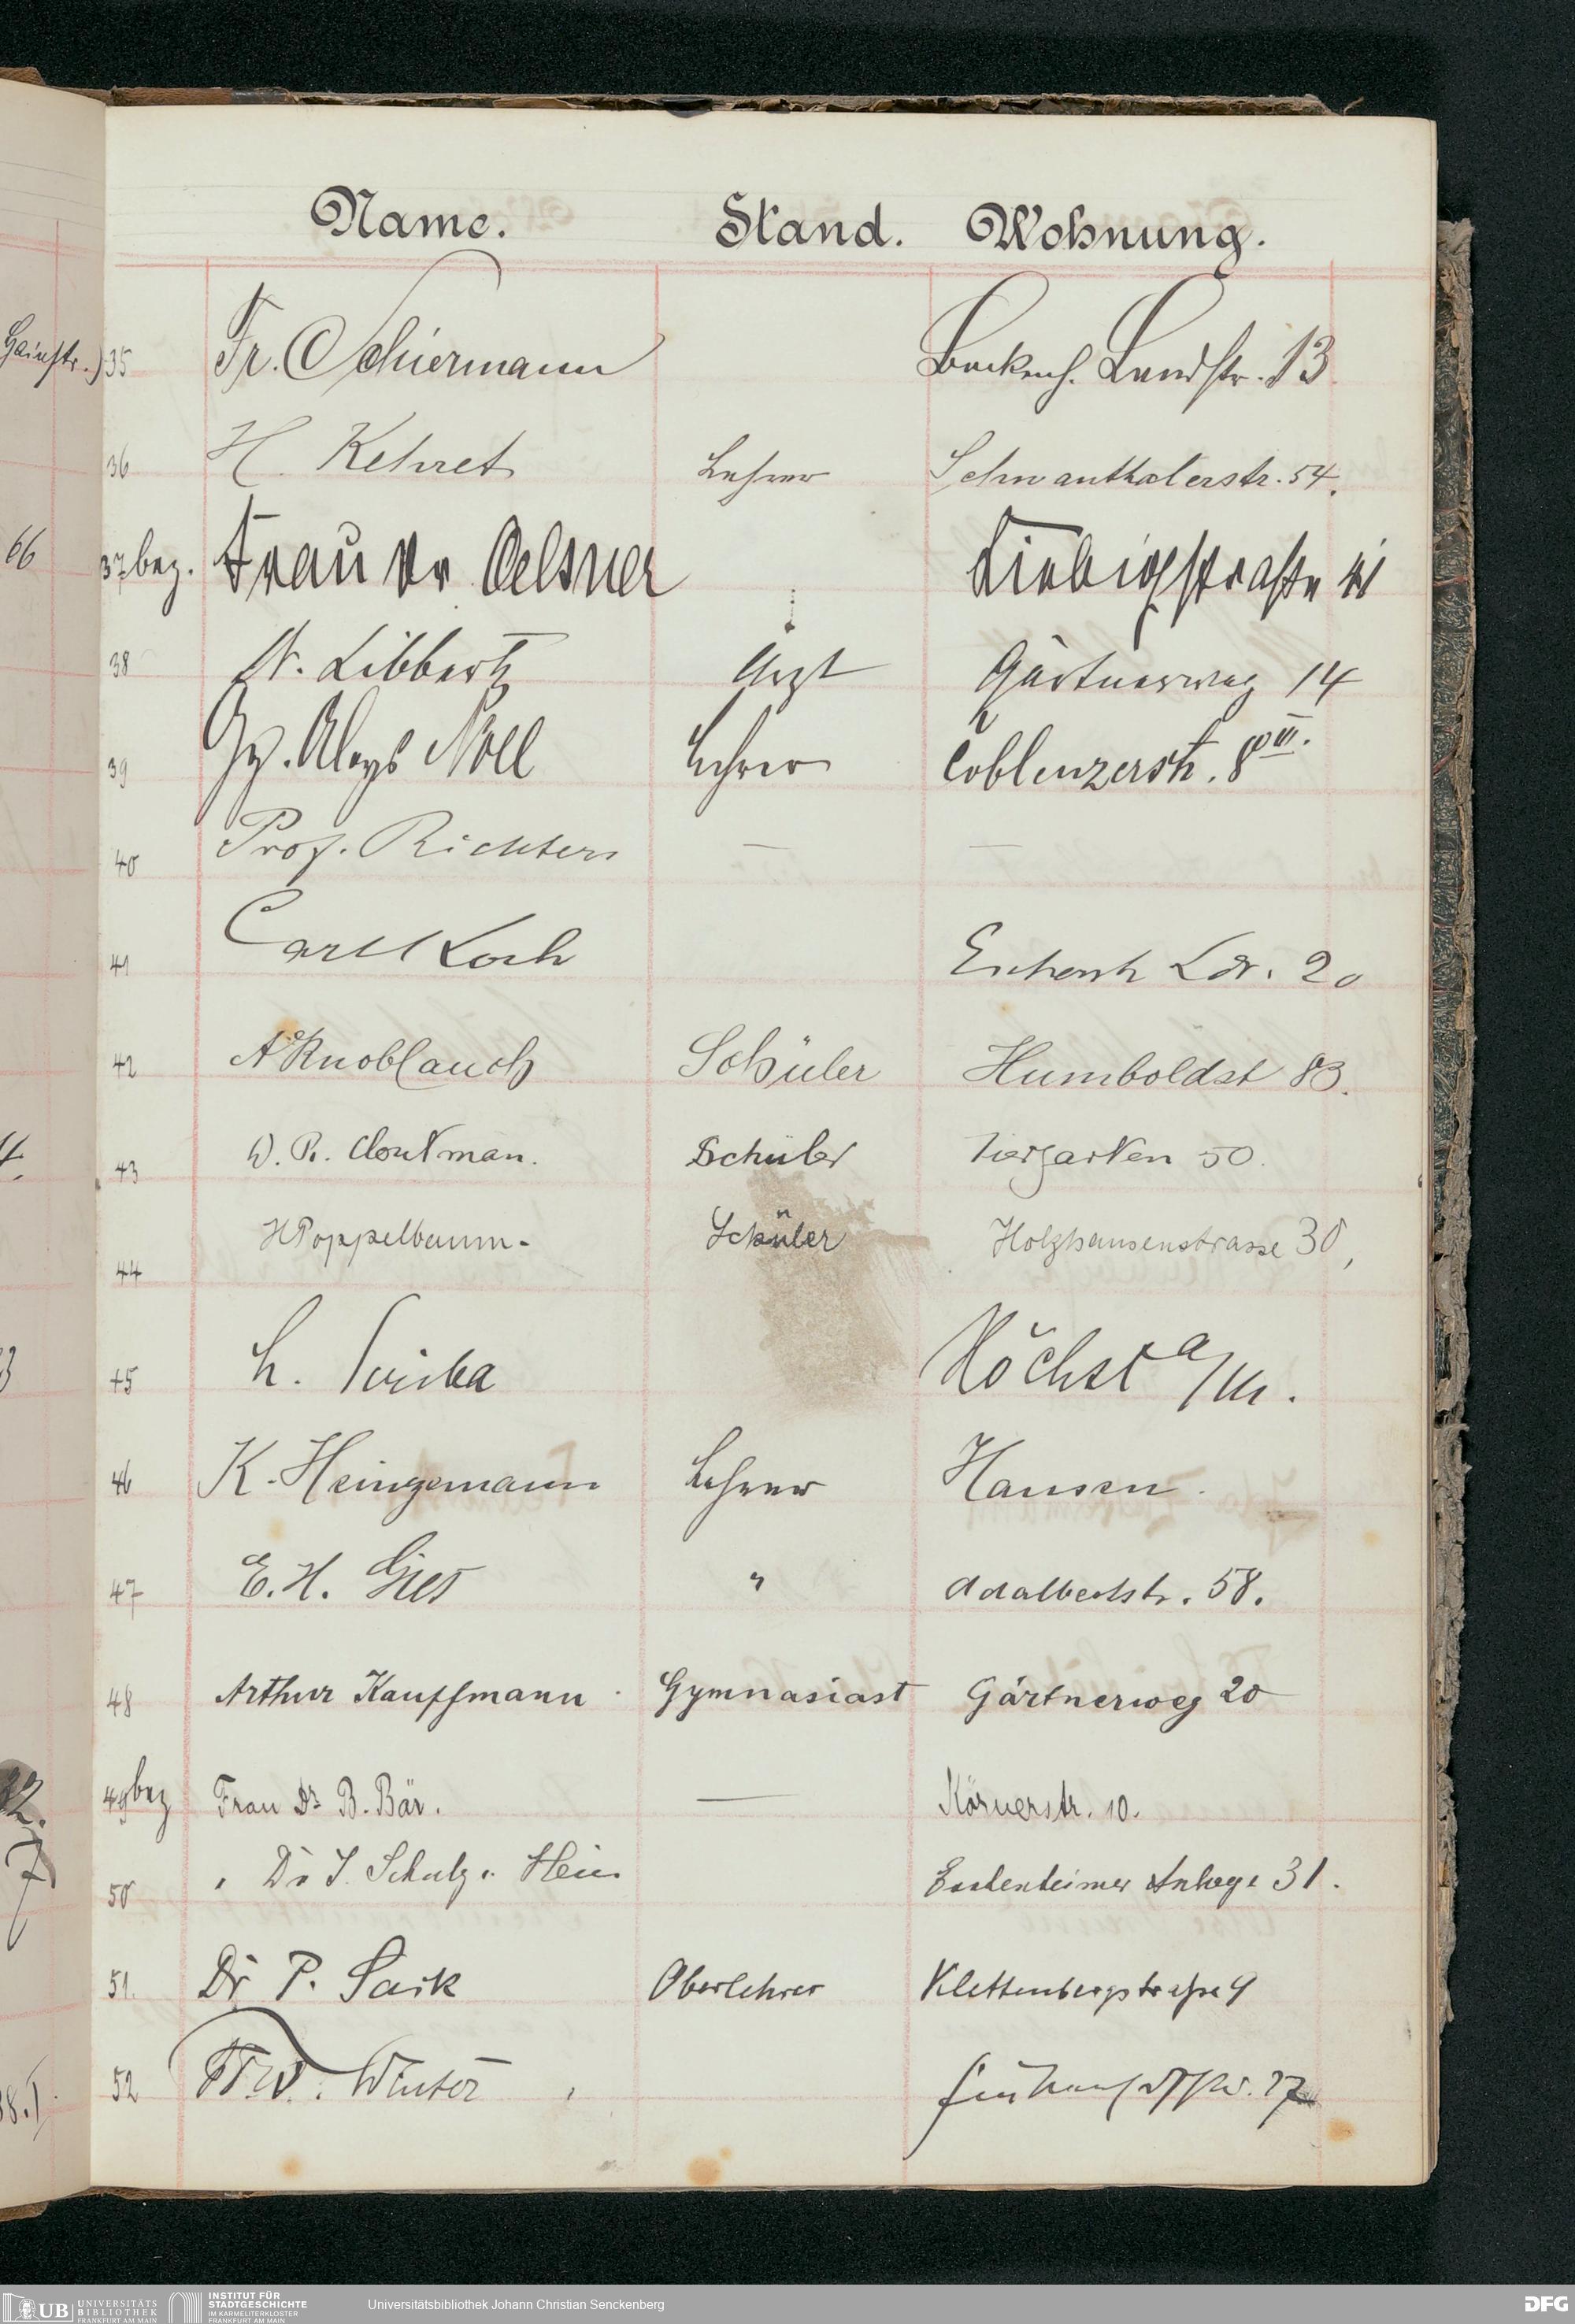 Name. Stand. Wohnung.
Hainstr.) 35 Fr. Schiermann Bockenh. Landstr. 13
36 H. Kehret Lehrer Schwanthalerstr. 54.
66 37 bez. Frau Dr Oelsner Liebigstraße
38 Dr. Libbertz Arzt Gärtnerweg 14
39 Gg. Aloys Noll Lehrer Coblenzerstr. 8 III.
40 Prof. Richters — —
41 Carl Koch Eschersh Ldr. 20
42 A Knoblauch Schüler Humboldst 83.
43 W. P. Cloutman. Schüler Tiergarten 50.
44 H Poppelbaum. Schüler Holzhausenstrasse 30,
45 L. Scriba Höchst a/M.
46 K. Heingemann Lehrer Hausen.
47 E. H. Gies " Adalbertstr. 58.
48 Arthur Kauffmann Gymnasiast Gärtnerweg 20
49 bez Frau Dr B. Bär. — Körnerstr. 10.
50 " Dr J. Schulz Hein Eschenheimer Anlage 31.
51. Dr P. Sack Oberlehrer Klettenbergstraße 9
52 Winter 27
UB UNIVERSITÄTS BIBLIOTHEK FRANKFURT AM MAIN
INSTITUT FÜR STADTGESCHICHTE IM KARMELITERKLOSTER FRANKFURT AM MAIN
Universitätsbibliothek Johann Christian Senckenberg
DFG